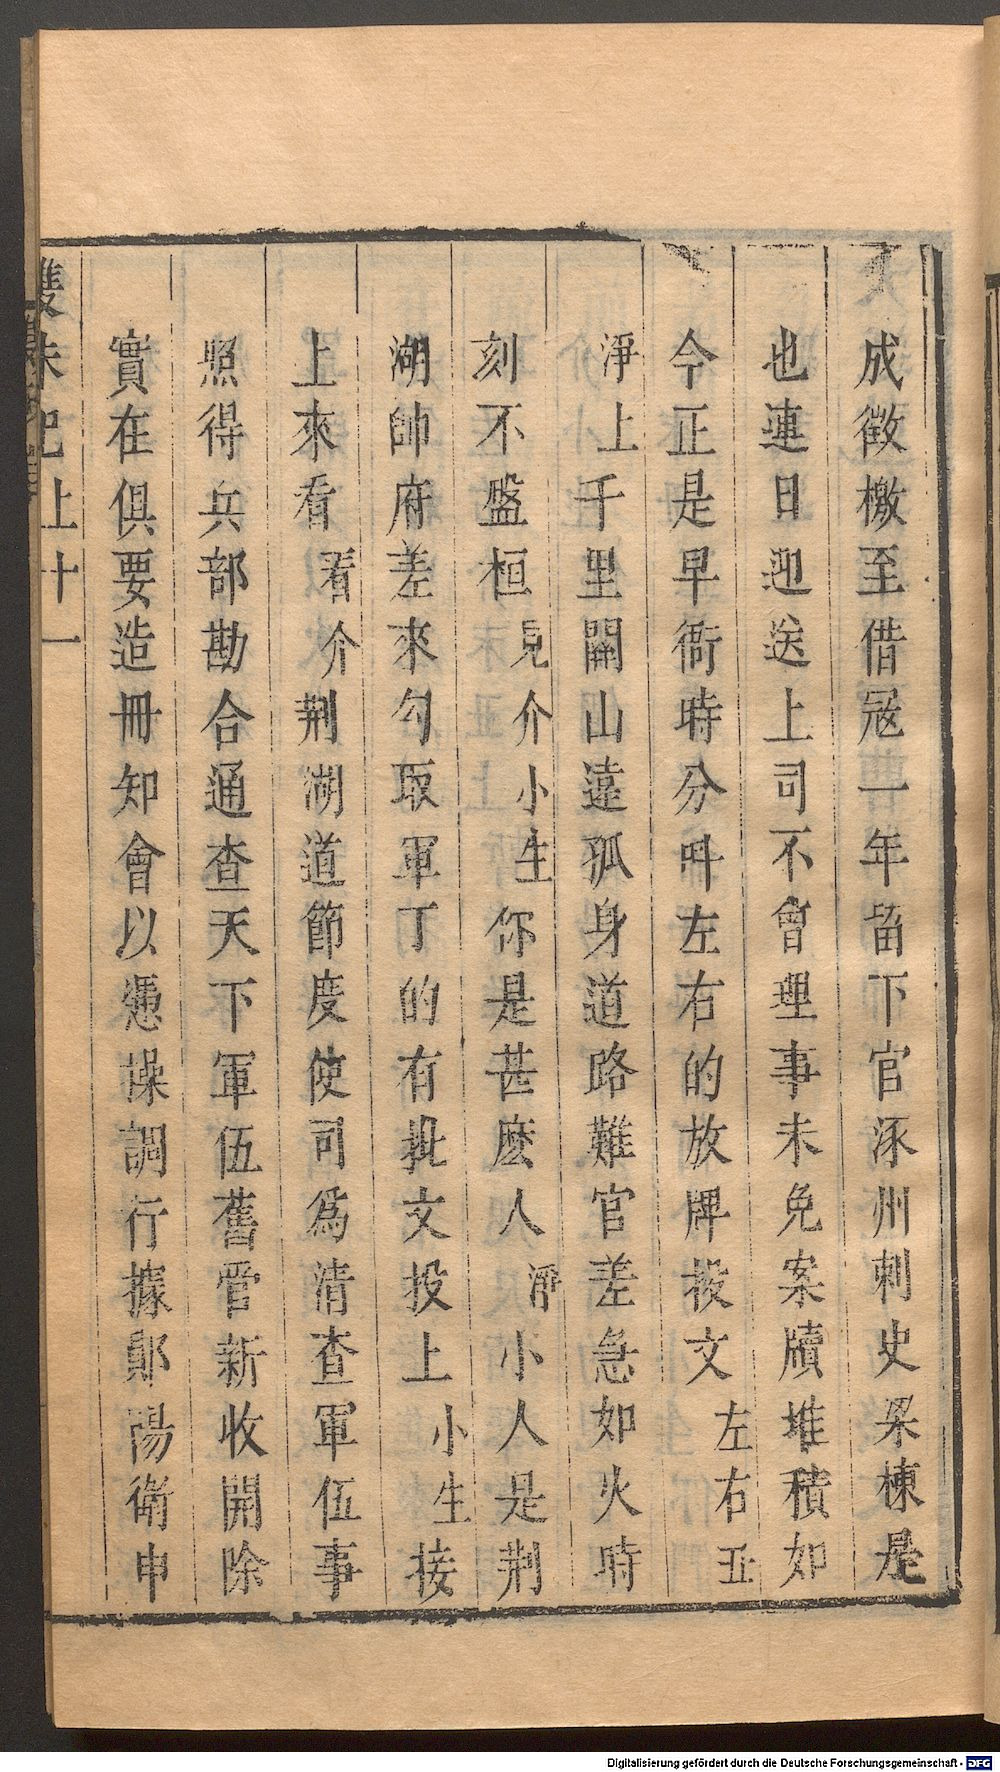 成徵檄至借冦一年畱下官涿州刺史梁棟是
也連日迎送上司不曾理事未免案牘堆積如
今正是早衙時分呌左右的放牌投文左右丑
淨上千里關山遠孤身道路難官差急如火時
刻不盤桓見介小生你是甚麽人淨小人是荆
湖帥府差來勾取軍丁的有批文投上小生接
上來看看介荆湖道節度使司爲清查軍伍事
照得兵部勘合通查天下軍伍舊管新收開除
實在俱要造冊知會以憑操調行據鄖陽衛申
雙珠記上十一
Digitalisierung gefördert durch die Deutsche Forschungsgemeinschaft - DFG